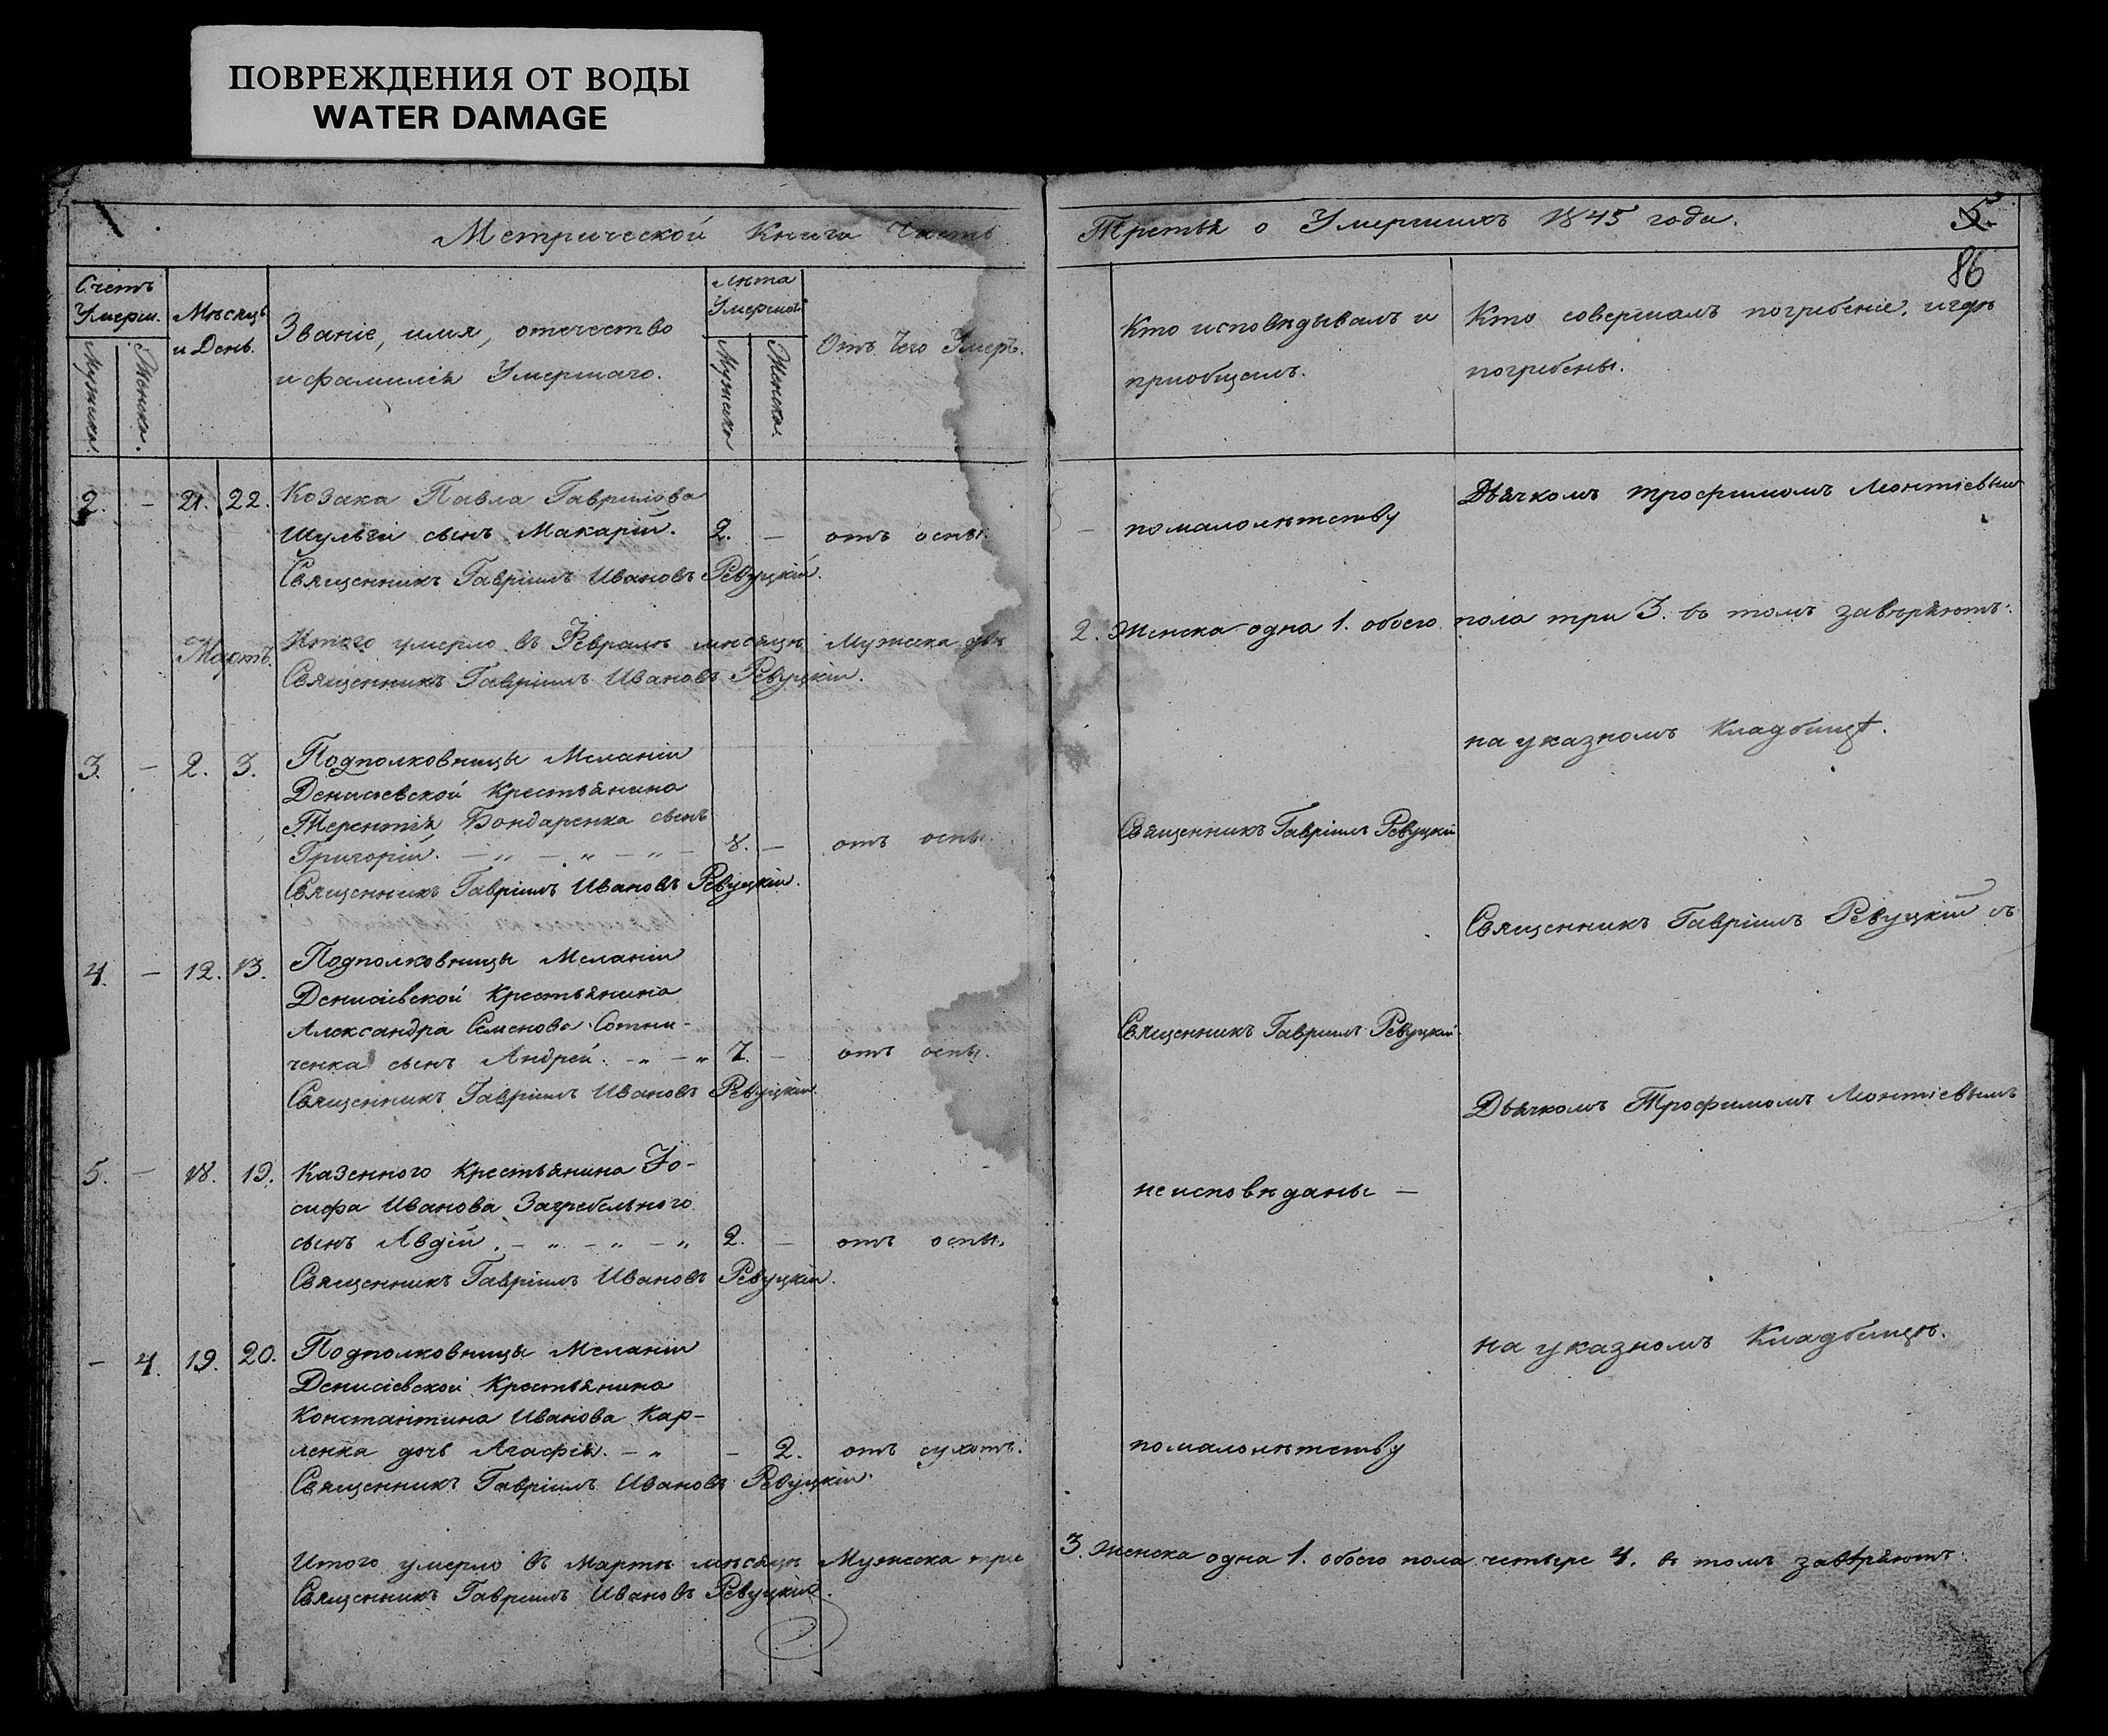 ПОВРЕЖДЕНИЯ ОТ ВОДЫ
WATER DAMAGE
Метрической Книги Часть Третья о Умершихъ 1845 года.
5.
86
Счетъ Умерш.
Мужеска.
Женска.
Мѣсяцъ и День.
Званіе, имя, отечество
и фамилія Умершаго.
Лѣта Умершаго
Мужеска
Женска.
Отъ Чего Умеръ.
Кто исповѣдывалъ и
приобщалъ.
Кто совершалъ погребеніе, и гдѣ
погребены.
2. – 21. 22. Козака Павла Гаврилова
Шульги сынъ Макарій. 2. – отъ оспы. – по малолѣтству
Дьячкомъ Трофимомъ Леонтіевым
Священникъ Гавріилъ Ивановъ Ревуцкій.
Итого умерло въ Февралѣ мѣсяцѣ Мужеска два 2. Женска одна 1. обоего пола три 3. въ томъ завѣряютъ:
Мартъ.
Священникъ Гавріилъ Ивановъ Ревуцкій.
на указномъ Кладбищѣ.
3. – 2. 3. Подполковницы Меланіи
Денисіевской Крестьянина
Терентія Бондаренка сынъ
Григорій. – „ – „ – „ – 8. – отъ оспы. Священникъ Гавріилъ Ревуцкій
Священникъ Гавріилъ Ивановъ Ревуцкій.
Священникъ Гавріилъ Ревуцкій съ
4. – 12. 13. Подполковницы Меланіи
Денисіевской Крестьянина
Александра Семенова Сотни-
ченка сынъ Андрей. – „ – „ 7. – отъ оспы. Священникъ Гавріилъ Ревуцкій
Священникъ Гавріилъ Ивановъ Ревуцкій.
Дьячкомъ Трофимомъ Леонтіевымъ
5. – 18. 19. Казенного Крестьянина Іо-
сифа Иванова Загребельного
сынъ Авдій. – „ – „ – „ 2. – отъ оспы. неисповѣданы –
Священникъ Гавріилъ Ивановъ Ревуцкій.
– 4. 19. 20. Подполковницы Меланіи
на указномъ Кладбищѣ.
Денисіевской Крестьянина
Константина Иванова Кар-
ленка дочь Агафія. – „ – 2. отъ сухотъ. по малолѣтству
Священникъ Гавріилъ Ивановъ Ревуцкій.
Итого умерло въ Мартѣ мѣсяцѣ Мужеска три 3. Женска одна 1. обоего пола четыре 4. въ томъ завѣряютъ:
Священникъ Гавріилъ Ивановъ Ревуцкій.